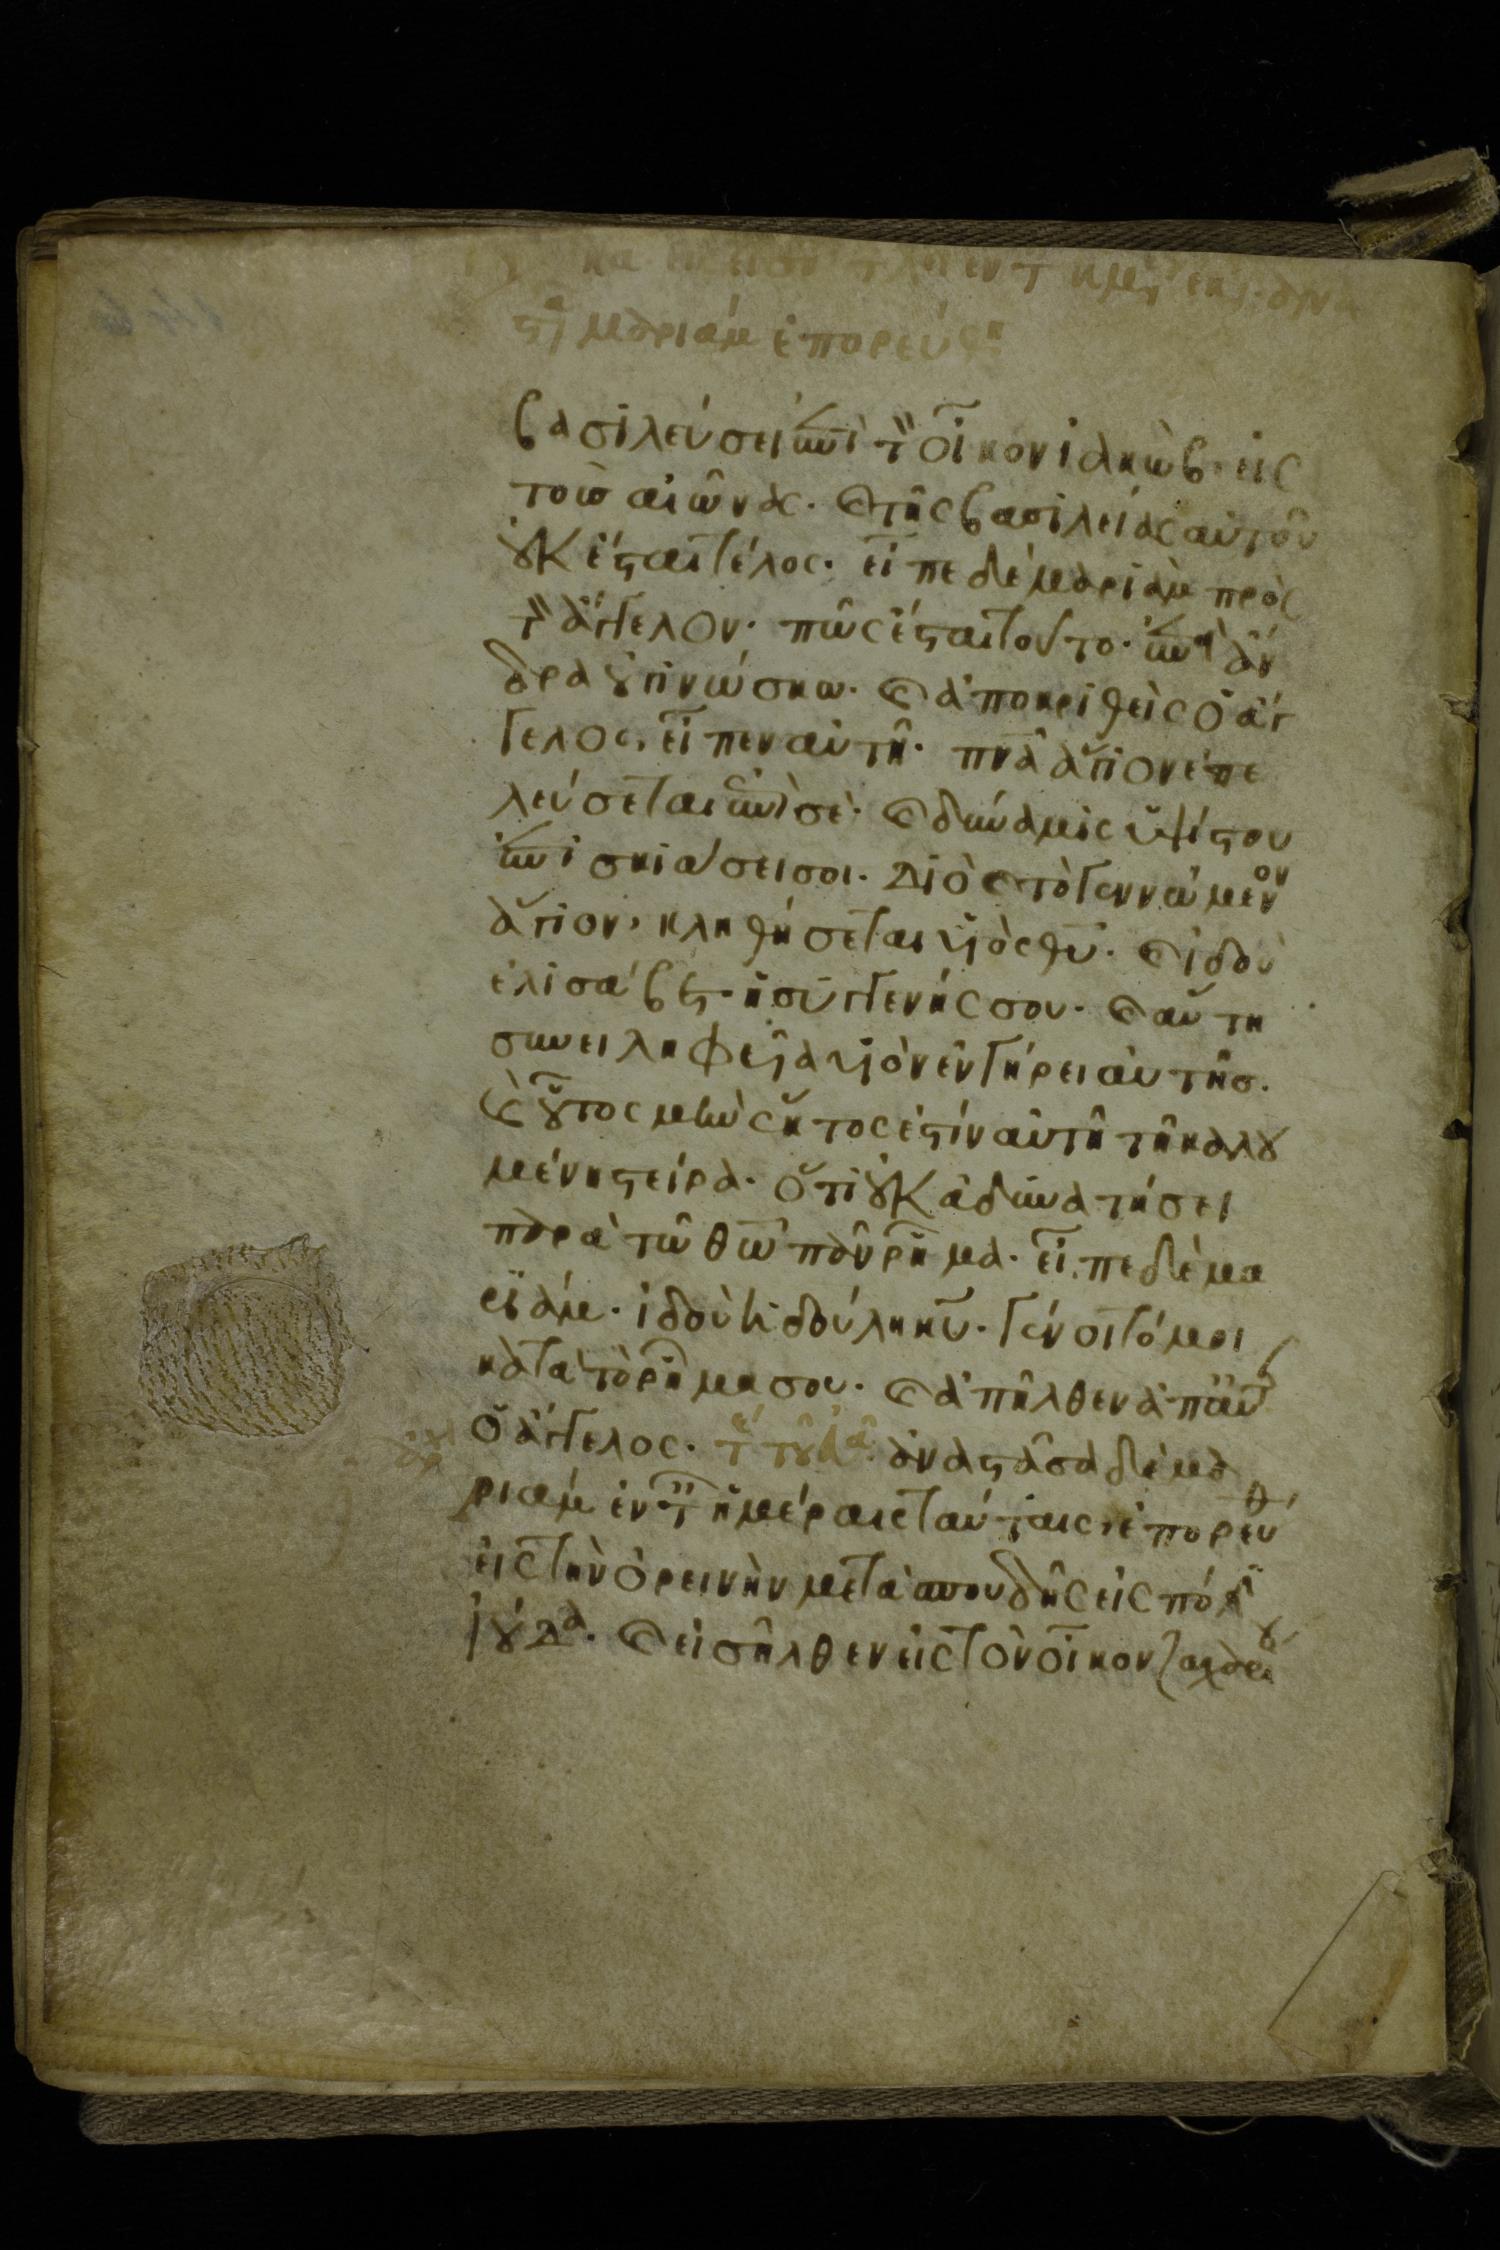 στὰ μαριάμ ἐπορεύθη
βασιλεύσει ἐπὶ τὸν οἶκον ἰακὼβ· εἰς
τοὺσ αἰῶνας. καὶ τῆς βασιλείας αὐτοῦ
οὐκ ἔσται τέλος. εἶπε δὲ μαριὰμ πρὸς
τὸν ἄγγελον. πῶς ἔσται τοῦτο. ἐπεὶ ἄν
δρα οὐ γινώσκω. καὶ ἀποκριθεὶς ὁ ἄγ
γελος, εἶπεν αὐτῆ. πνα ἅγιον ἐπε
λεύσεται ἐπὶ σὲ. καὶ δύναμις ὑψίστου
ἐπισκιάσει σοι. Διὸ καὶ τὸ γεννώμενον
ἅγιον, κληθήσεται υἱὸς θυ. καὶ ἰδοὺ
ἐλισάβετ. ἡ συγγενής σου. καὶ αὕτη
συνειληφεῖα υἱὸν ἐν γήρει αὐτῆσ.
καὶ οὗτος μὴν ἕκτος ἐστὶν αὐτῆ τῆ καλου
μένη στείρα. ὅτι οὐκ ἀδυνατήσει
παρὰ τῶ θω πᾶν ῥῆμα. εἶπε δὲ μα
ριάμ. ἰδοὺ ἡ δούλη κυ. γένοιτό μοι
κατὰ τὸ ῥῆμα σου. καὶ ἀπῆλθεν ἀπ' αὐτῆς
ὁ ἄγγελος. ἀναστᾶσα δὲ μα
ριαμ ἐν ταῖς ἡμέραις ταύταις, ἐπορεύθη
εἰς τὴν ὀρεινὴν μετὰ σπουδῆς εἰς πόλιν
ἰούδα. καὶ εἰσῆλθεν εἰς τὸν οἶκον ζαχαρίου